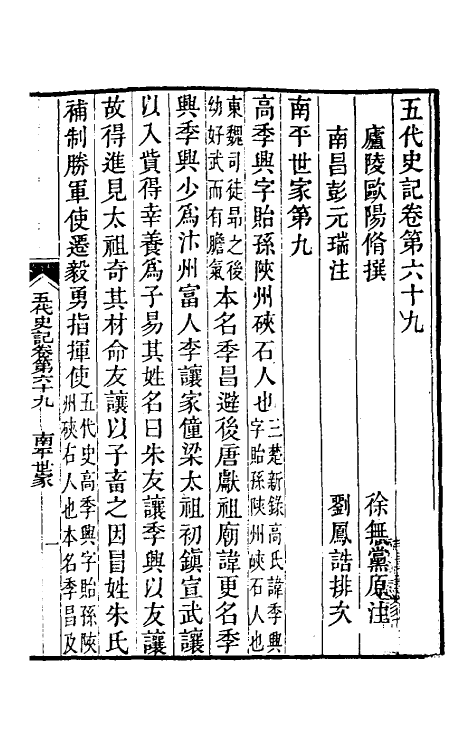 五代史記卷第六十九
廬陵歐陽脩撰 徐無黨原注
南昌彭元瑞注 劉鳳誥排次
南平世家第九
高季興字貽孫陜州硤石人也三楚新錄高氏諱季興字貽孫陜州硤石人也
東魏司徒昂之後幼好武而有膽氣本名季昌避後唐獻祖廟諱更名季
興季興少爲汴州富人李讓家僮梁太祖初鎮宣武讓
以入貲得幸養爲子易其姓名曰朱友讓季興以友讓
故得進見太祖奇其材命友讓以子畜之因冒姓朱氏
補制勝軍使遷毅勇指揮使五代史高季興字貽孫陜州硤石人也本名季昌及
五代史記卷第六十九 南平世家 一